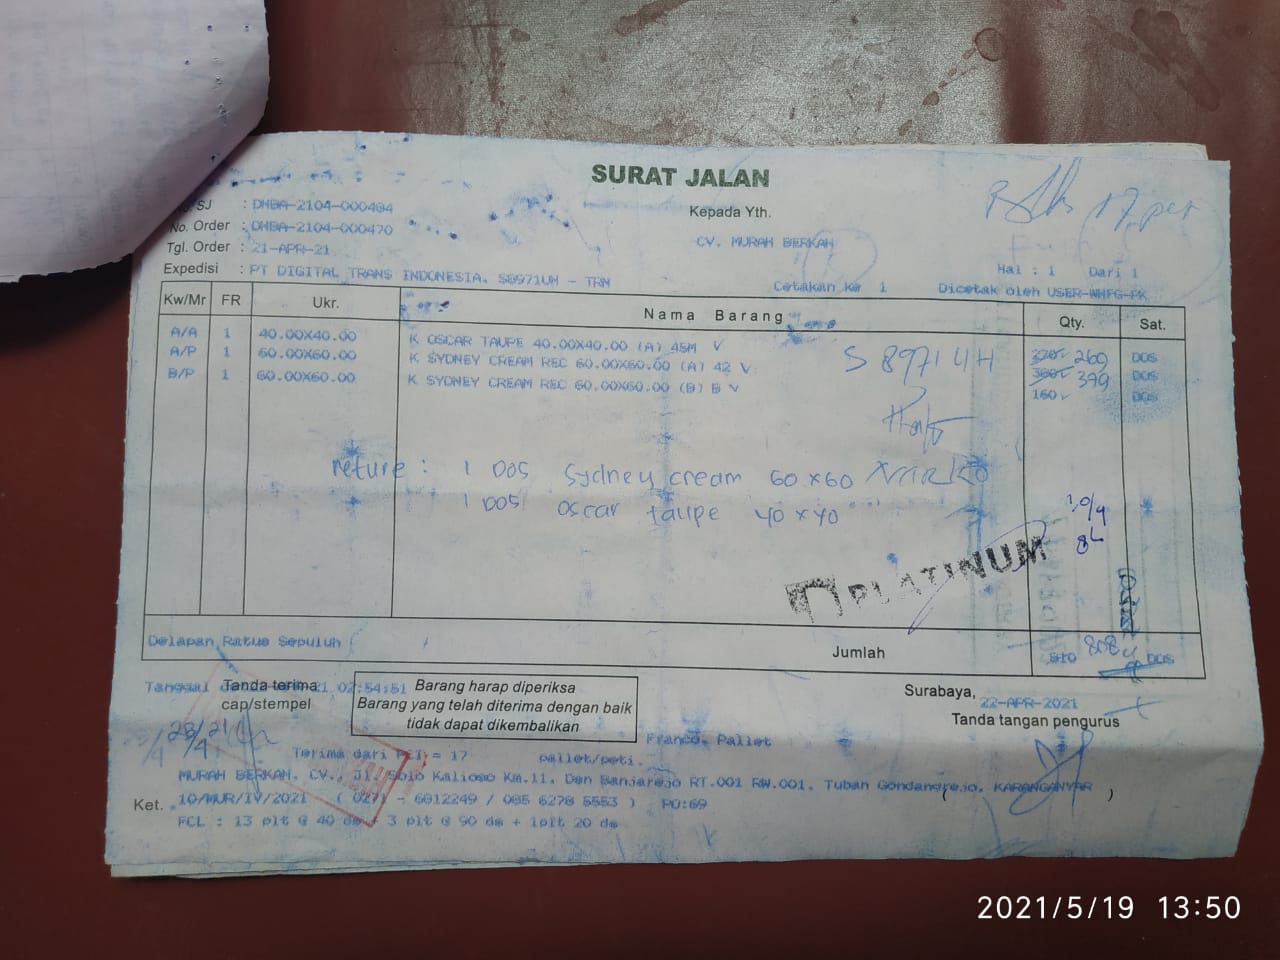 SURAT JALAN
SJ : DHBA-2104-000484
No. Order : DHBA-2104-000470
Tgl. Order : 21-APR-21
Expedisi : PT DIGITAL TRANS INDONESIA. S8971UH - TRN
Kepada Yth.
CV. MURAH BERKAH
17 pet
Hal : 1 Dari 1
Cetakan Ke 1 Dicetak oleh USER-WHFG-PK
Kw/Mr FR Ukr. Nama Barang Qty. Sat.
A/A 1 40.00X40.00 K OSCAR TAUPE 40.00X40.00 (A) 45M V 269 DOS
A/P 1 60.00X60.00 K SYDNEY CREAM REC 60.00X60.00 (A) 42 V 379 DOS
B/P 1 60.00X60.00 K SYDNEY CREAM REC 60.00X60.00 (B) B V 160 DOS
S 8971 UH
reture : 1 DOS Sydney cream 60x60
1 DOS oscar taupe 40x40
PLATINUM
Delapan Ratus Sepuluh Jumlah 810 808 DOS
Tanggal 02:54:51
Tanda terima
cap/stempel
Barang harap diperiksa
Barang yang telah diterima dengan baik
tidak dapat dikembalikan
Surabaya, 22-APR-2021
Tanda tangan pengurus
28/4 21
Franco. Pallet
Terima dari = 17 pallet/peti.
MURAH BERKAH. CV., Jl. Solo Kalioso Km.11. Den Banjarejo RT.001 RW.001. Tuban Gondangrejo. KARANGANYAR
Ket. 10/MUR/IV/2021 ( 0271 - 6812249 / 085 6278 5553 ) PO:69
( )
FCL : 13 plt @ 40 ds + 3 plt @ 90 ds + 1plt 20 ds
2021/5/19 13:50